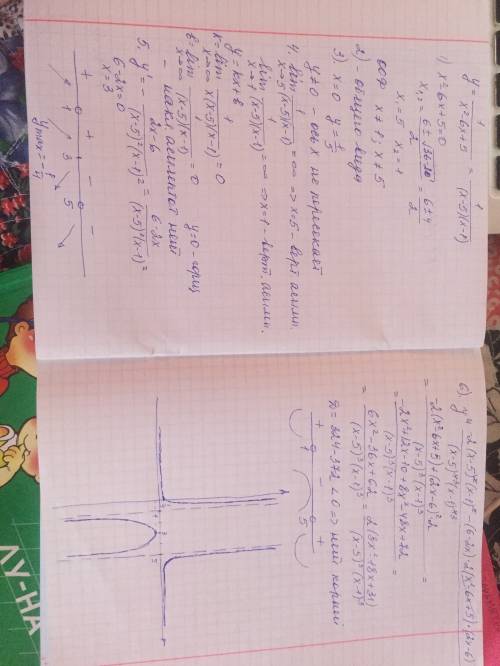 y = 1/(x²-6x+5) = 1/((x-5)(x-1))
1) x²-6x+5=0
x₁,₂ = (6±√(36-20))/2 = (6±4)/2
x₁=5 x₂=1
ООФ x≠1; x≠5
2) общего вида
3). x=0 y=1/5
y≠0 - ось x не пересекает
4. lim x→5 1/((x-5)(x-1)) = ∞ => x=5 - верт. асимп.
lim x→1 1/((x-5)(x-1)) = ∞ => x=1 - верт. асимп.
y=kx+b
k=lim x→∞ 1/(x(x-5)(x-1)) = 0
b=lim x→∞ 1/((x-5)(x-1)) = 0 y=0 - гориз
- накл асимптот нет
5. y' = - (2x-6)/((x-5)²(x-1)²) = (6-2x)/((x-5)²(x-1)²) =
6-2x=0
x=3
+ + - -
1 3 5
y max = -1/4
6). y'' = (-2(x-5)²(x-1)²-(6-2x)·2(x²-6x+5)·(2x-6))/((x-5)⁴(x-1)⁴)
= (-2(x²-6x+5)+(2x-6)²·2)/((x-5)³(x-1)³) =
= (-2x²+12x-10+8x²-48x+72)/((x-5)³(x-1)³) =
= (6x²-36x+62)/((x-5)³(x-1)³) = 2(3x²-18x+31)/((x-5)³(x-1)³)
D = 324-372 < 0 => нет корней
+ - +
1 5
ЛУ-НА